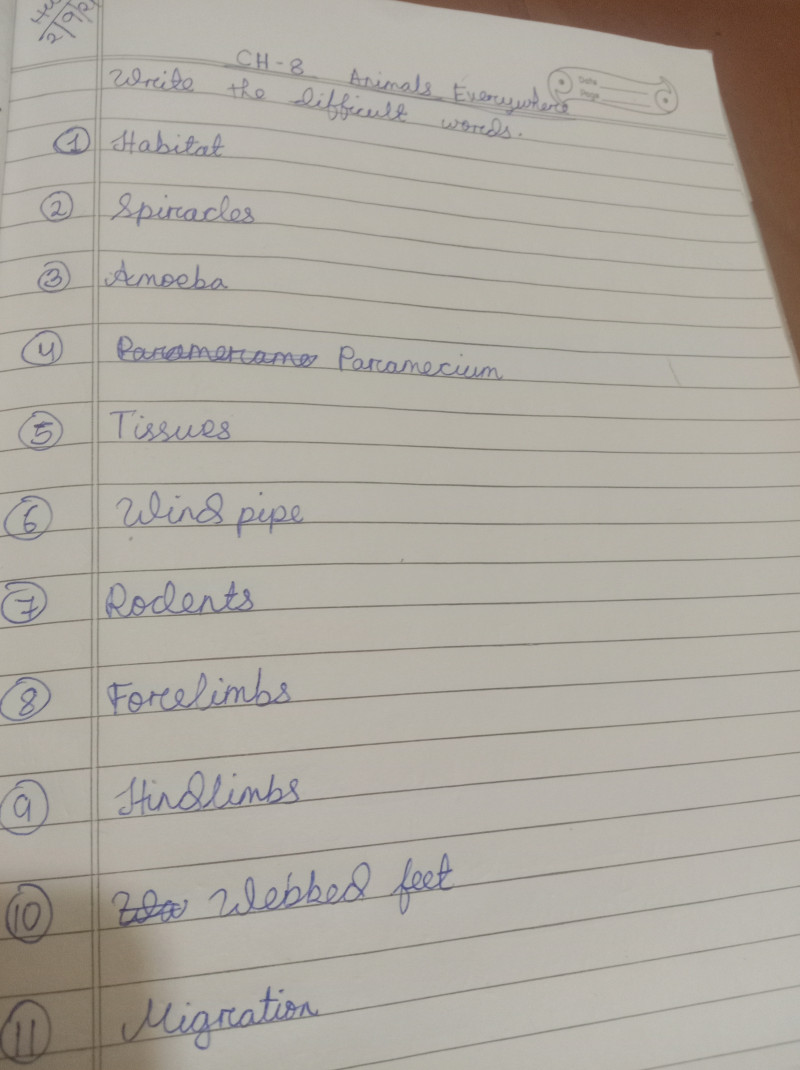 CH-8 Animals Everywhere
Date
Page
Write the difficult words.
① Habitat
② Spiracles
③ Amoeba
④ Paramecium
⑤ Tissues
⑥ Wind pipe
⑦ Rodents
⑧ Forelimbs
⑨ Hindlimbs
⑩ Webbed feet
⑪ Migration